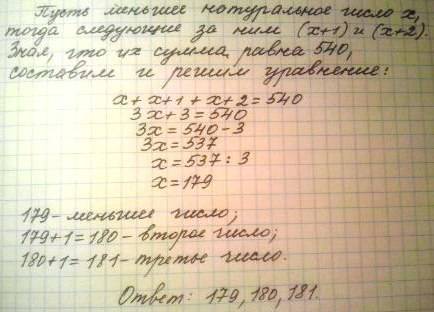 Пусть меньшее натуральное число x,
тогда следующие за ним (x+1) и (x+2).
Зная, что их сумма равна 540,
составим и решим уравнение:
x + x+1 + x+2 = 540
3x+3 = 540
3x = 540-3
3x = 537
x = 537 : 3
x = 179
179 - меньшее число;
179+1 = 180 - второе число;
180+1 = 181 - третье число.
Ответ: 179, 180, 181.